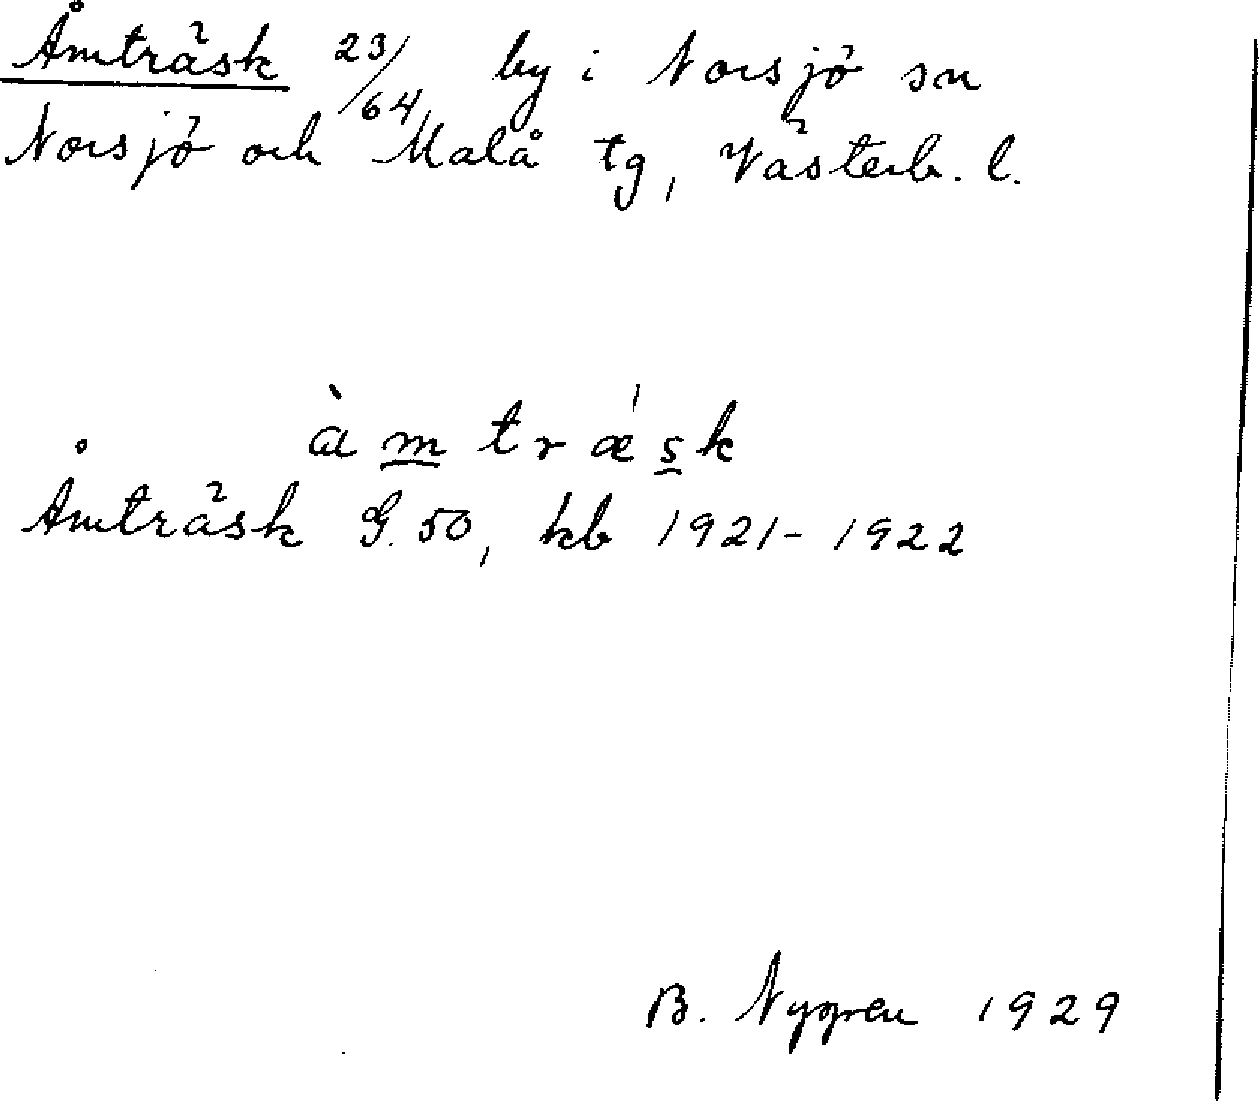 Åmträsk 23/64 by i Norsjö sn
Norsjö och Malå tg, Västerb. l.
àmtrǽsk
Åmträsk G. 50, kb 1921-1922
B. Nygren 1929